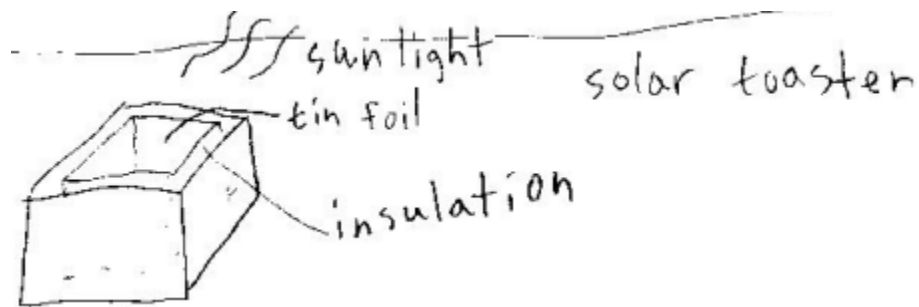 sunlight
solar toaster
tin foil
insulation